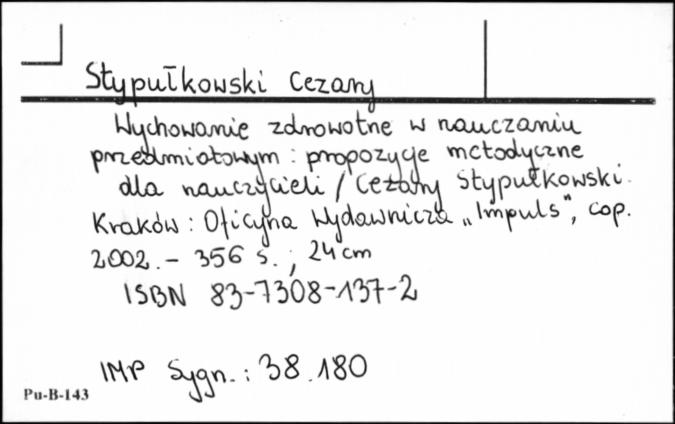 Stypułkowski Cezary
Wychowanie zdrowotne w nauczaniu
przedmiotowym : propozycje metodyczne
dla nauczycieli / Cezary Stypułkowski.
Kraków : Oficyna Wydawnicza „Impuls", cop.
2002. – 356 s. ; 24 cm
ISBN 83-7308-137-2
IMP Sygn. : 38.180
Pu-B-143